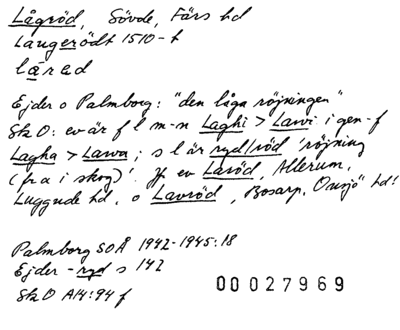 Lågröd, Sövde, Färs hd
Laugerödt 1510-t
låræd
Ejder o Palmborg: "den låga röjningen"
Sk O: ev är f l m-n Laghi > Lawi i gen-f
Lagha > Lawa; s l är ryd/röd 'röjning
(fr a i skog)'. Jf ev Laröd, Allerum,
Luggude hd, o Lavröd, Bosarp, Onsjö hd!
Palmborg SOÅ 1942-1945:18
Ejder -ryd s 142
Sk O A14:94 f
00027969